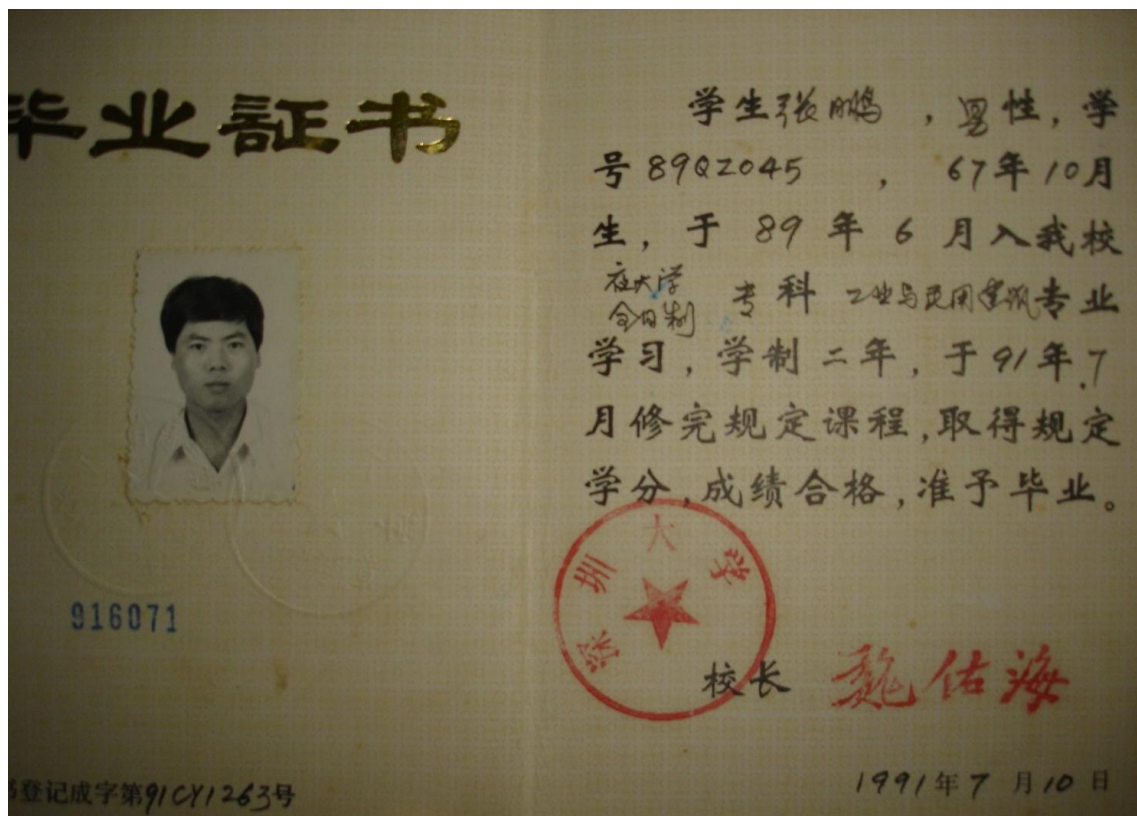 毕业証书
916071
书登记成字第91CY1263号
学生张鹏 ，男性，学
号89QZ045 ， 67年10月
生，于 89 年 6 月入我校
夜大学
全日制
专科 工业与民用建筑专业
学习，学制二年，于91年.7
月修完规定课程，取得规定
学分，成绩合格，准予毕业。
深圳大学
校长 魏佑海
1991年7月10日